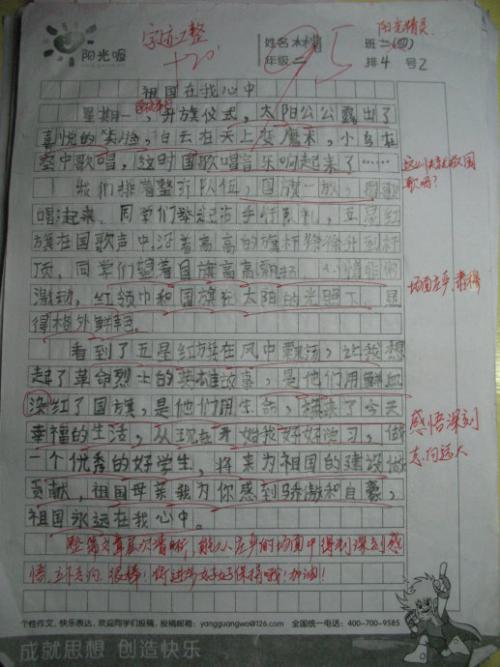 字迹工整
+20
95
阳光精灵
阳光喔
姓名 班 二(四)
年级 二 排 4 号 2
祖国在我心中
星期一,升旗仪式,太阳公公露出了
喜悦的笑脸,白云在天上变魔术,小鸟在
空中歌唱,这时国歌唱音乐响起来了……
我们排着整齐队伍,国旗一放,
唱起来,同学们 五星红
旗在国歌声中沿着高高的旗杆 升到杆
顶,同学们望着国旗高高
激动,红领巾和国旗在太阳的光照下,显
得格外鲜艳。
看到了五星红旗在风中飘荡,让我想
起了革命烈士的英雄故事,是他们用鲜血
染红了国旗,是他们用生命,换来了今天
幸福的生活,从现在开始我好好学习,做
一个优秀的好学生,将来为祖国的建设做
贡献,祖国母亲我为你感到骄傲和自豪,
祖国永远在我心中。
场面庄严,
感悟深刻
志向远大
整篇文章层次清晰,能从庄严的场面中得到深刻感
悟, 很棒!你进步 好好保持哦!加油!
个性作文,快乐表达,欢迎同学们投稿,投稿邮箱:yangguangwo@126.com 全国统一电话:400-700-9585
成就思想 创造快乐